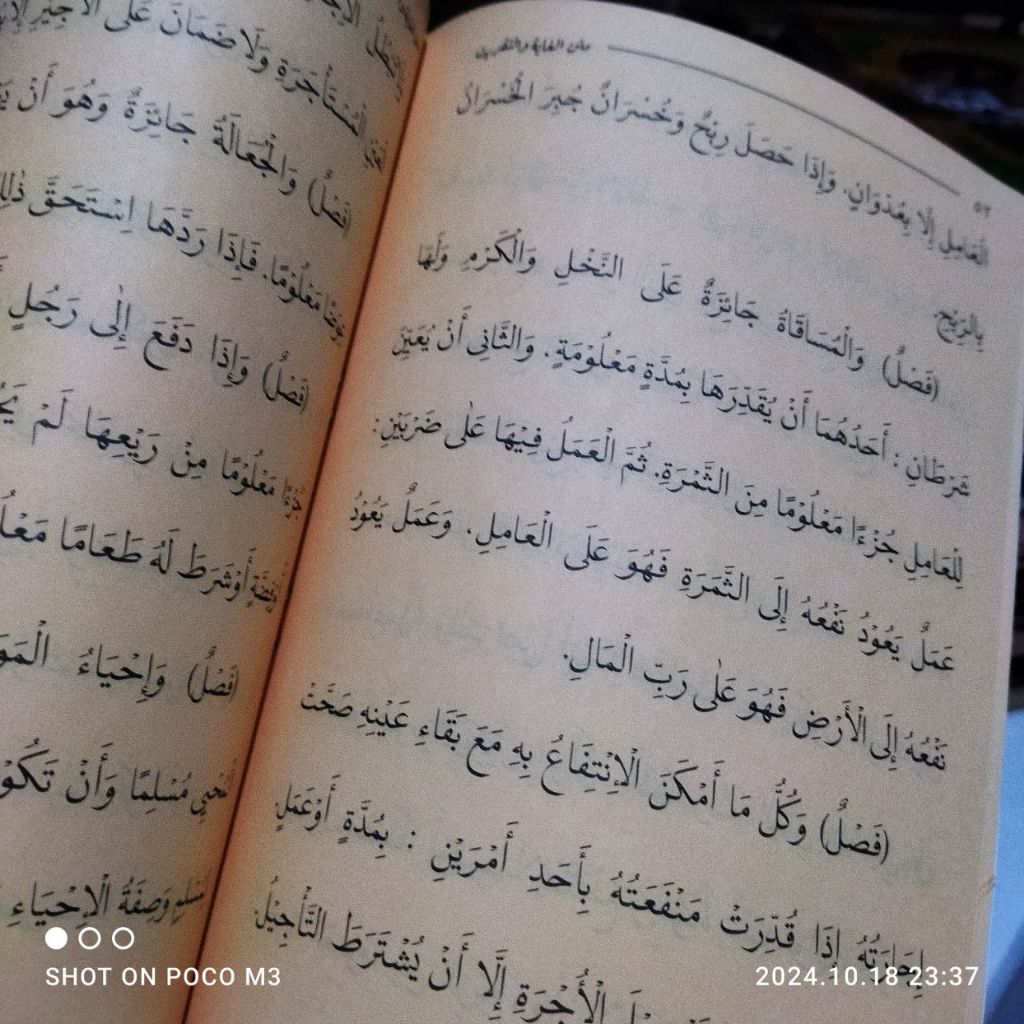 متن الغاية والتقريب
٥٢
الْعَامِلِ إِلَّا بِعُدْوَانٍ. وَإِذَا حَصَلَ رِبْحٌ وَخُسْرَانٌ جُبِرَ الْخُسْرَانُ
بِالرِّبْحِ.
(فَصْلٌ) وَالْمُسَاقَاةُ جَائِزَةٌ عَلَى النَّخْلِ وَالْكَرْمِ وَلَهَا
شَرْطَانِ : أَحَدُهُمَا أَنْ يُقَدِّرَهَا بِمُدَّةٍ مَعْلُوْمَةٍ. وَالثَّانِى أَنْ يُعَيِّنَ
لِلْعَامِلِ جُزْءًا مَعْلُوْمًا مِنَ الثَّمَرَةِ. ثُمَّ الْعَمَلُ فِيْهَا عَلَى ضَرْبَيْنِ:
عَمَلٌ يَعُوْدُ نَفْعُهُ إِلَى الثَّمَرَةِ فَهُوَ عَلَى الْعَامِلِ. وَعَمَلٌ يَعُوْدُ
نَفْعُهُ إِلَى الْأَرْضِ فَهُوَ عَلَى رَبِّ الْمَالِ.
(فَصْلٌ) وَكُلُّ مَا أَمْكَنَ الْإِنْتِفَاعُ بِهِ مَعَ بَقَاءِ عَيْنِهِ صَحَّتْ
إِجَارَتُهُ إِذَا قُدِّرَتْ مَنْفَعَتُهُ بِأَحَدِ أَمْرَيْنِ : بِمُدَّةٍ أَوْعَمَلٍ.
الْأُجْرَةِ إِلَّا أَنْ يُشْتَرَطَ التَّأْجِيْلُ.
الْمُسْتَأْجَرَةِ وَلَاضَمَانَ عَلَى الْأَجِيْرِ
(فَصْلٌ) وَالْجُعَالَةُ جَائِزَةٌ وَهُوَ أَنْ
عِوَضًا مَعْلُوْمًا. فَإِذَا رَدَّهَا اِسْتَحَقَّ ذٰلِكَ
(فَصْلٌ) وَإِذَا دَفَعَ إِلَى رَجُلٍ
جُزْءًا مَعْلُوْمًا مِنْ رَيْعِهَا لَمْ
أَوْفِضَّةٍ أَوْشَرَطَ لَهُ طَعَامًا
(فَصْلٌ) وَإِحْيَاءُ
الْمُحْيِي مُسْلِمًا وَأَنْ
مُسْلِمٍ وَصِفَةُ الْإِحْيَاءِ
SHOT ON POCO M3
2024.10.18 23:37